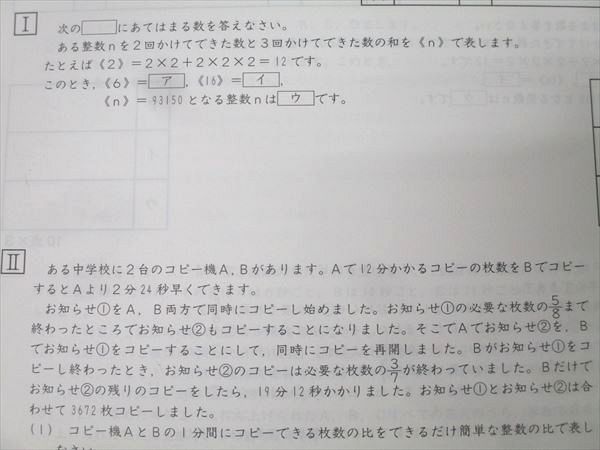 I 次の□にあてはまる数を答えなさい。
ある整数nを2回かけてできた数と3回かけてできた数の和を《n》で表します。
たとえば《2》=2×2+2×2×2=12です。
このとき,《6》=ア,《16》=イ,
《n》=93150となる整数nはウです。
II ある中学校に2台のコピー機A,Bがあります。Aで12分かかるコピーの枚数をBでコピー
するとAより2分24秒早くできます。
お知らせ①をA,B両方で同時にコピーし始めました。お知らせ①の必要な枚数の5/8まで
終わったところでお知らせ②もコピーすることになりました。そこでAでお知らせ②を,B
でお知らせ①をコピーすることにして,同時にコピーを再開しました。Bがお知らせ①をコ
ピーし終わったとき,お知らせ②のコピーは必要な枚数の3/7が終わっていました。Bだけで
お知らせ②の残りのコピーをしたら,19分12秒かかりました。お知らせ①とお知らせ②は合
わせて3672枚コピーしました。
(1) コピー機AとBの1分間にコピーできる枚数の比をできるだけ簡単な整数の比で表し
なさい。